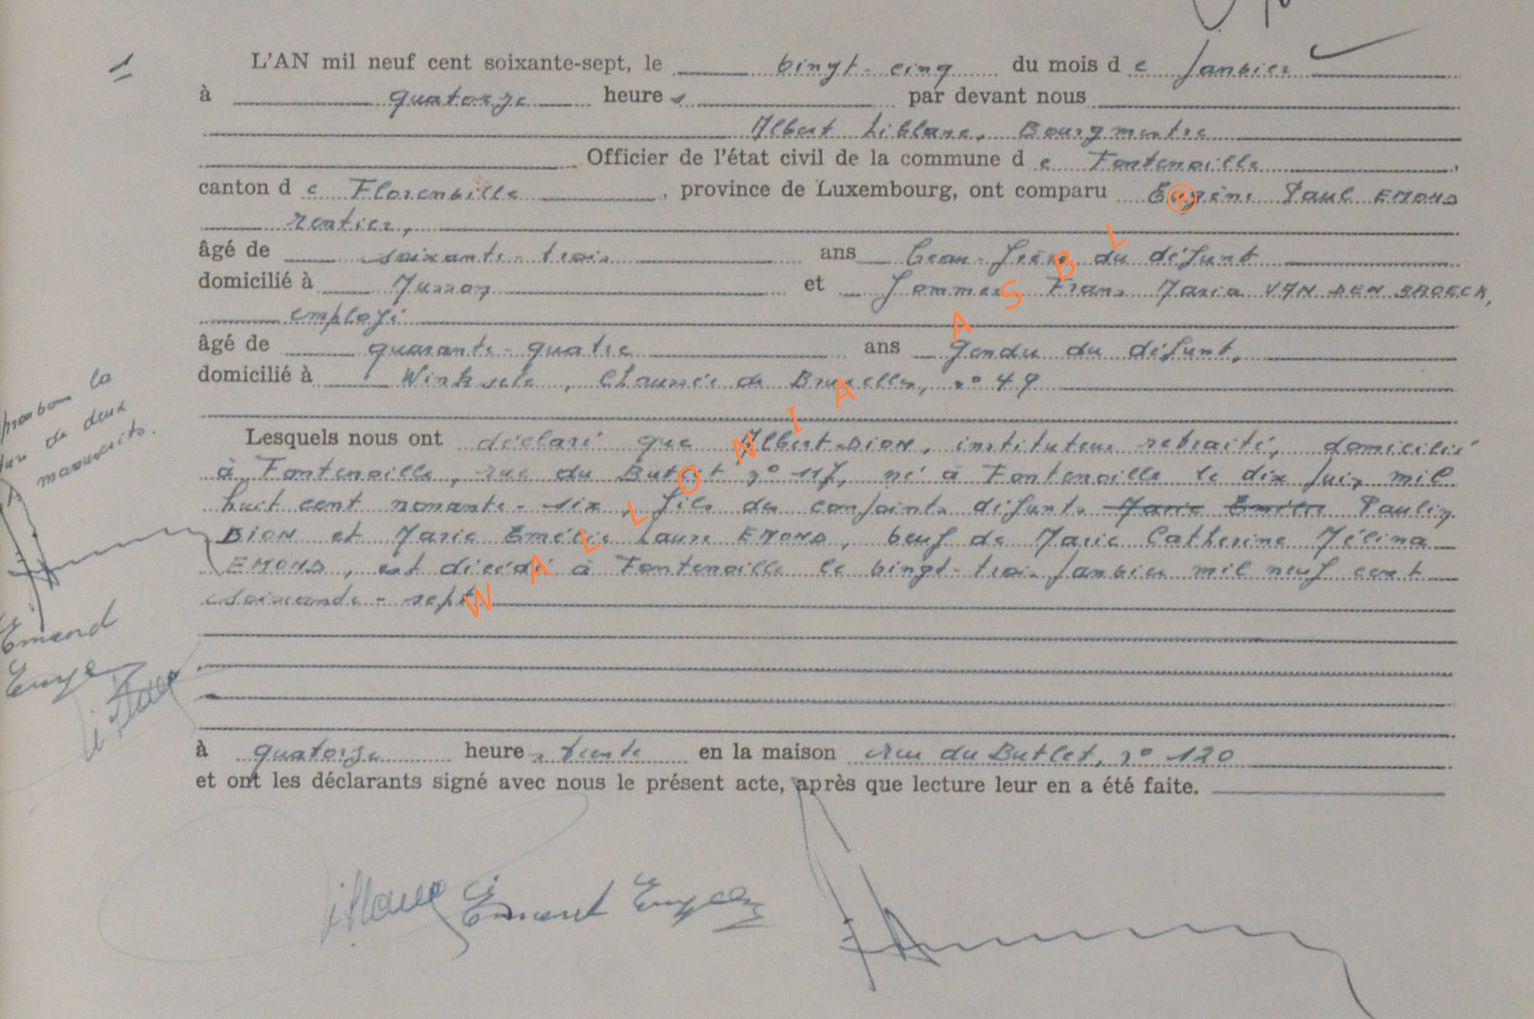 1
L'AN mil neuf cent soixante-sept, le vingt-cinq du mois d e Janvier
à quatorze heure s par devant nous
Albert Liblanc, Bourgmestre
Officier de l'état civil de la commune d e Fontenoille,
canton d e Florenville, province de Luxembourg, ont comparu Eugène Paul EMOND
rentier,
âgé de soixante-trois ans beau-frère du défunt
domicilié à Jussay et Frans Maria VAN DEN BROECK,
employé
âgé de quarante-quatre ans gendre du défunt,
domicilié à Winksele, Chaussée de Bruxelles, n° 49
Lesquels nous ont déclaré que Albert DION, instituteur retraité, domicilié
à Fontenoille, rue du Butlet n° 117, né à Fontenoille le dix Juin mil
huit cent nonante-six, fils des conjoints défunts Marie Emélie Paulin
DION et Marie Emélie Laure EMOND, veuf de Marie Catherine Mélina
EMOND, est décédé à Fontenoille le vingt-trois Janvier mil neuf cent
soixante-sept
à quatorze heure s trente en la maison rue du Butlet, n° 120
et ont les déclarants signé avec nous le présent acte, après que lecture leur en a été faite.
la
de deux
manuscrits.
Emond
Emond
WALLONIA ASBL ®